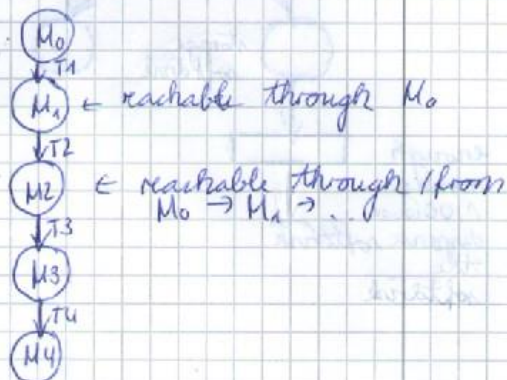 M0
T1
M1 ← reachable through M0
T2
M2 ← reachable through / from
M0 → M1 → ...
T3
M3
T4
M4